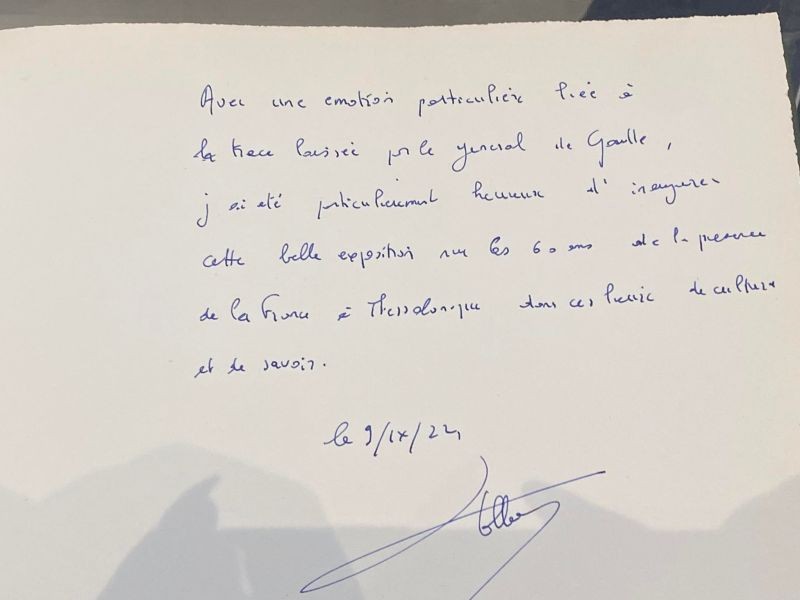 Avec une emotion particulière liée à
la trace laissée par le général de Gaulle,
j'ai été particulièrement heureux d'inaugurer
cette belle exposition sur les 60 ans de la présence
de la France à Thessalonique dans ces lieux de culture
et de savoir.
le 9/IX/22,